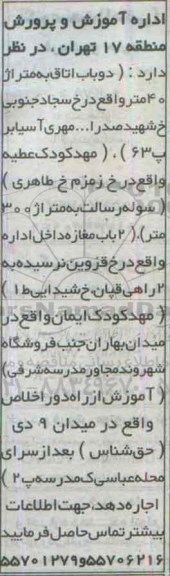 اداره آموزش و پرورش
منطقه ۱۷ تهران، در نظر
دارد : ( دو باب اتاق به متراژ
۴۰ متر واقع در خ سجاد جنوبی
خ شهید صدرا... مهری آسیابر
پ ۶۳ ) ، ( مهد کودک عطیه
واقع در خ زمزم خ طاهری )
( سوله رسالت به متراژ ۳۰۰
متر)، ( ۲ باب مغازه داخل اداره
واقع در خ قزوین نرسیده به
۲ راهی قپان خ شیدایی ط ۱ )
( مهد کودک ایمان واقع در
میدان بهاران جنب فروشگاه
شهروند مجاور مدرسه شرفی)
( آموزش از راه دور اخلاص
واقع در میدان ۹ دی
( حق شناس ) بعد از سرای
محله عباسی ک مدرسه پ ۲ )
اجاره دهد، جهت اطلاعات
بیشتر تماس حاصل فرمایید
۵۵۷۰۶۲۱۶و۵۵۷۰۱۲۷۹